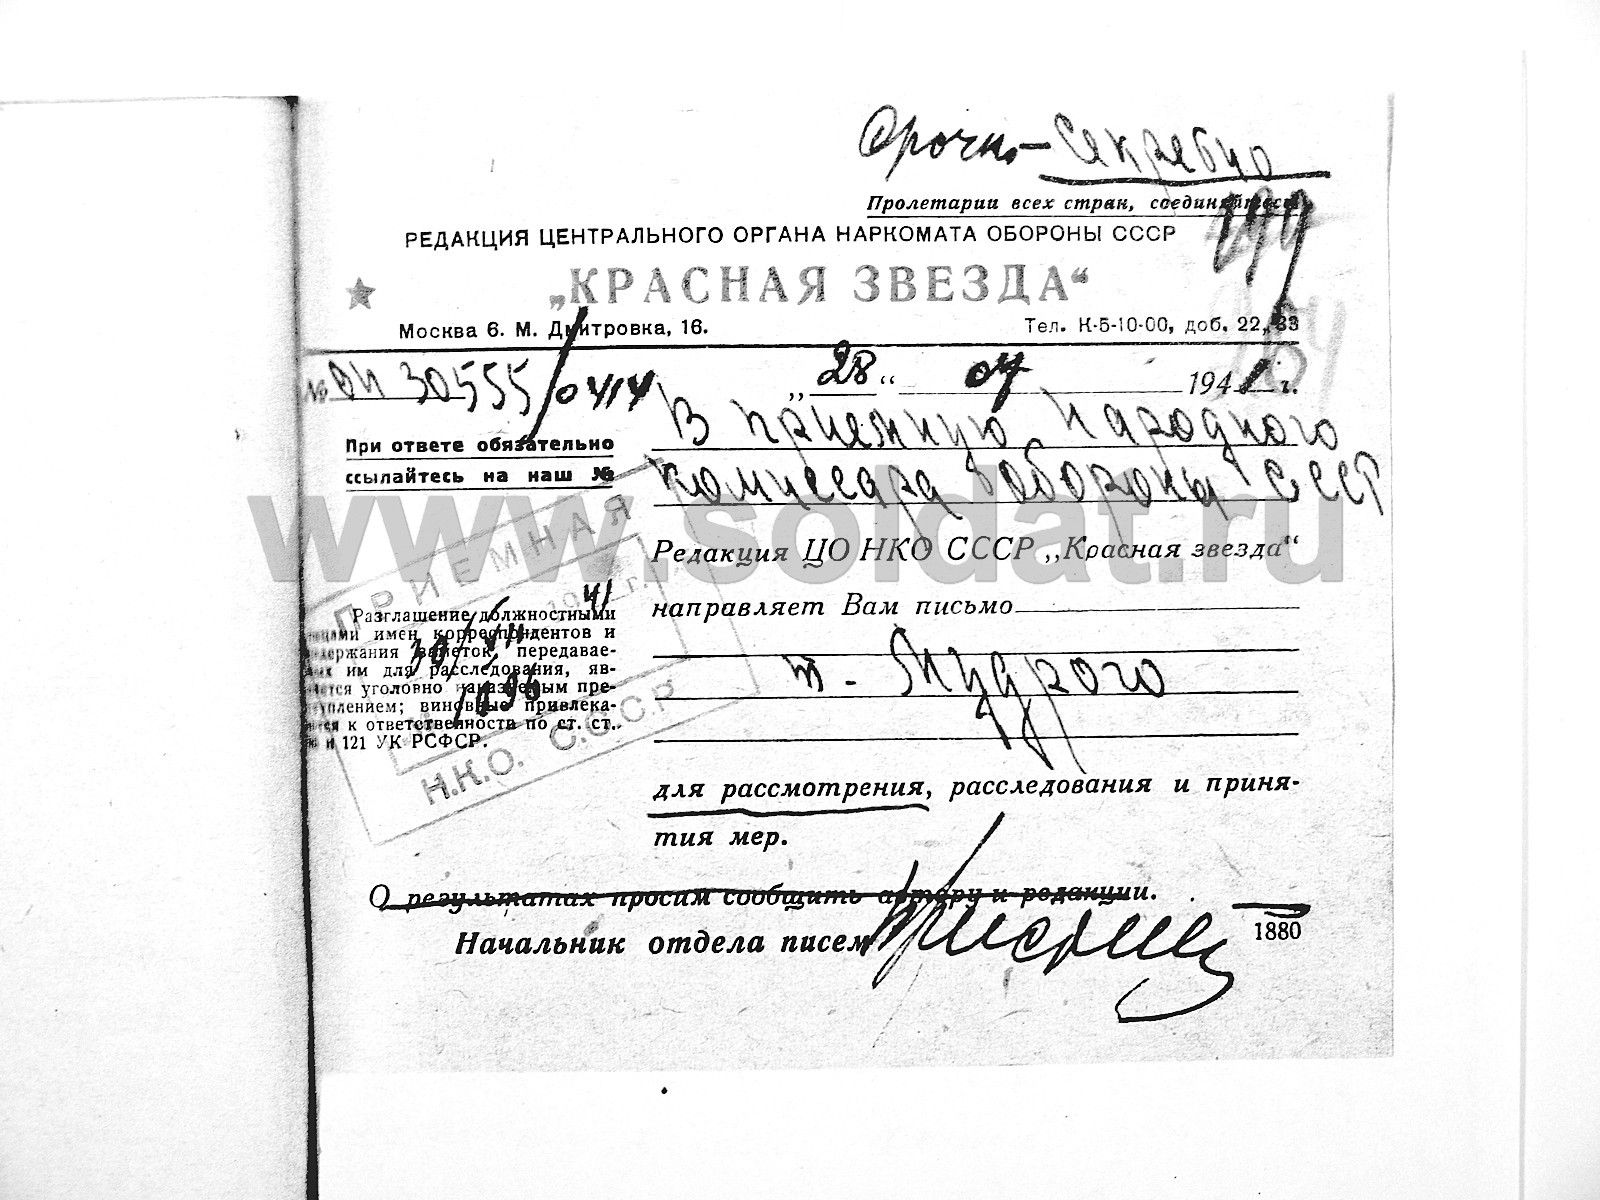 Срочно – Секретно
Пролетарии всех стран, соединяйтесь
199
РЕДАКЦИЯ ЦЕНТРАЛЬНОГО ОРГАНА НАРКОМАТА ОБОРОНЫ СССР
„КРАСНАЯ ЗВЕЗДА“
Москва 6. М. Дмитровка, 16.
Тел. К-5-10-00, доб. 22, 33
№ 30555/0414
„28“ 07 1941 г.
При ответе обязательно
ссылайтесь на наш №
В приемную Народного
комиссара обороны СССР
www.soldat.ru
Редакция ЦО НКО СССР „Красная звезда“
направляет Вам письмо
т. Мудрого
ПРИЕМНАЯ
41 г.
30/VII
Н.К.О. С.С.С.Р
Разглашение должностными
лицами имен корреспондентов и
содержания заметок, передавае-
мых им для расследования, яв-
ляется уголовно наказуемым пре-
ступлением; виновные привлека-
ются к ответственности по ст. ст.
и 121 УК РСФСР.
для рассмотрения, расследования и приня-
тия мер.
О результатах просим сообщить автору и редакции.
Начальник отдела писем
1880